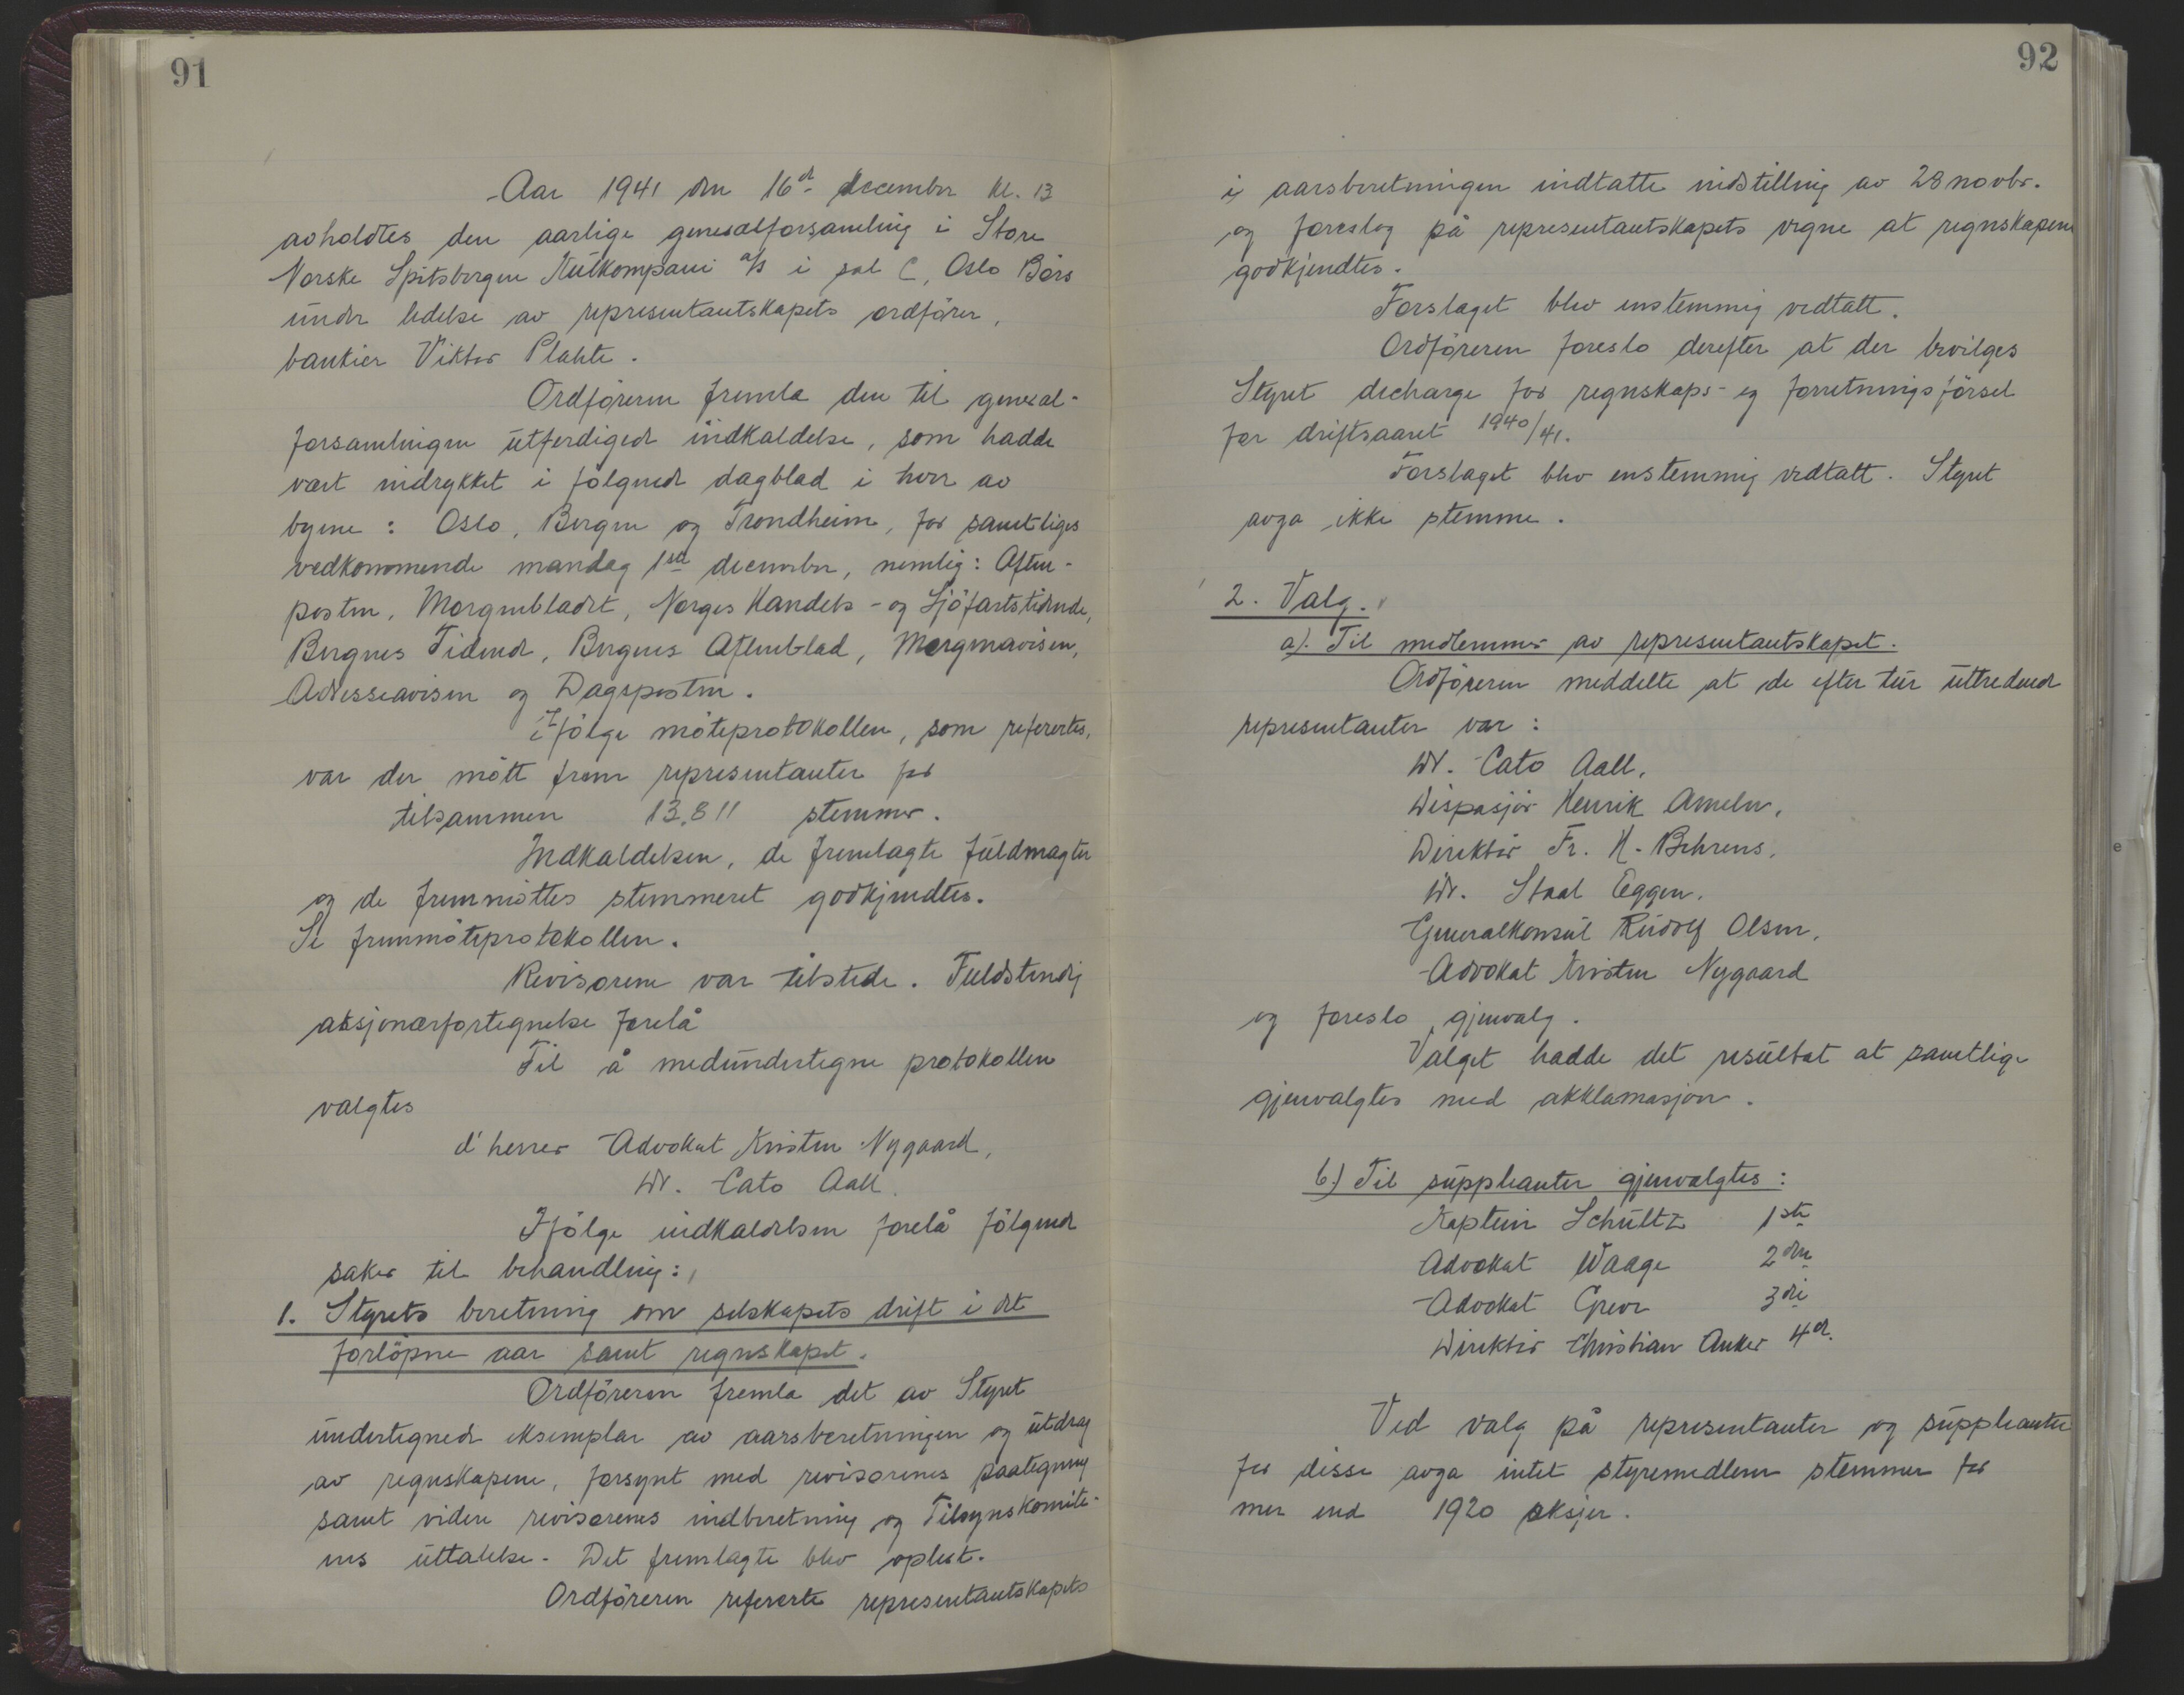 91
Aar 1941 den 16de december kl. 13
avholdtes den aarlige generalforsamling i Store
Norske Spitsbergen Kulkompani a/s i sal C, Oslo Börs
under ledelse av representantskapets ordförer,
bankier Viktor Plahte.
Ordföreren fremla den til general-
forsamlingen utferdigede indkaldelse, som hadde
vært indrykket i følgende dagblad i hver av
byene: Oslo, Bergen og Trondheim, for samtliges
vedkommende mandag 1ste december, nemlig: Aften-
posten, Morgenbladet, Norges Handels- og Sjöfartstidende,
Bergens Tidende, Bergens Aftenblad, Morgenavisen,
Adresseavisen og Dagsposten.
Ifölge möteprotokollen, som refertes,
var der mött frem representanter for
tilsammen 13.811 stemmer.
Indkaldelsen, de fremlagte fuldmagter
og de fremmöttes stemmeret godkjendtes.
Se fremmöteprotokollen.
Revisorene var tilstede. Fuldstendig
aksjonærfortegnelse forelå
Til å medundertegne protokollen
valgtes
d'herrer Advokat Kristen Nygaard,
Dr. Cato Aall.
Ifölge indkaldelsen forelå fölgende
saker til behandling:
1. Styrets beretning om selskapets drift i det
forlöpne aar samt regnskapet.
Ordföreren fremla det av Styret
undertegnede eksemplar av aarsberetningen og utdrag
av regnskapene, forsynt med revisorenes paategning
samt videre revisorenes indberetning og Tilsynskomite-
ens uttalelse. Det fremlagte blev oplest.
Ordföreren refererte representantskapets
92
i aarsberetningen indtatte indstilling av 28 novbr.
og foreslog på representantskapets vegne at regnskapene
godkjendtes.
Forslaget blev enstemmig vedtatt.
Ordföreren foreslo derefter at der bevilges
Styret decharge for regnskaps- og forretningsförsel
for driftsaaret 1940/41.
Forslaget blev enstemmig vedtatt. Styret
avga ikke stemme.
2. Valg.
a). Til medlemmer av representantskapet.
Ordföreren meddelte at de efter tur uttredende
representanter var:
Dr. Cato Aall,
Dispasjör Henrik Ameln,
Direktör Fr. H. Behrens,
Dr. Staal Eggen,
Generalkonsul Rudolf Olsen,
Advokat Kristen Nygaard
og foreslo gjenvalg.
Valget hadde det resultat at samtlige
gjenvalgtes med akklamasjon.
b) Til suppleanter gjenvalgtes:
Kaptein Schultz 1ste
Advokat Waage 2den
Advokat Greve 3die
Direktör Christian Anker 4de.
Ved valg på representanter og suppleanter
for disse avga intet styremedlem stemmer for
mer end 1920 aksjer.